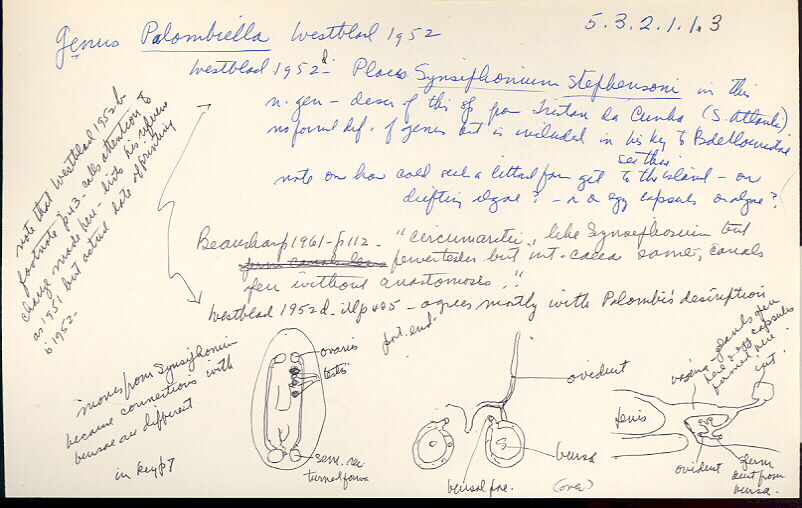 Genus Palombiella Westblad 1952
5.3.2.1.1.3
Westblad 1952d - Places Synsiphonium stephensoni in this
n. gen - descr of this sp from Tristan da Cunha (S. Atlantic)
no formal def. of genus but is included in his key to Bdellouridae
see this
note on how could such a littoral form get to this island - on
drifting algae? - or egg capsules on algae?
note that Westblad 1952b
footnote p43 - calls attention to
change made here - lists his refs
as 1951 but actual date of printing
is 1952 -
Beauchamp 1961 - p112 - "circumarctic, like Synsiphonium but
but int. caeca same, canals
few without anastomosis."
Westblad 1952d - ill p405 - agrees mostly with Palombi's description
moves from Synsiphonium
because connections with
bursae are different
in key p7
ovaries
testis
sem. rec
post. end.
oviduct
bursa
bursal pore.
(over)
vagina - glands open
here & egg capsules
formed here.
penis
oviduct
duct from
bursa.